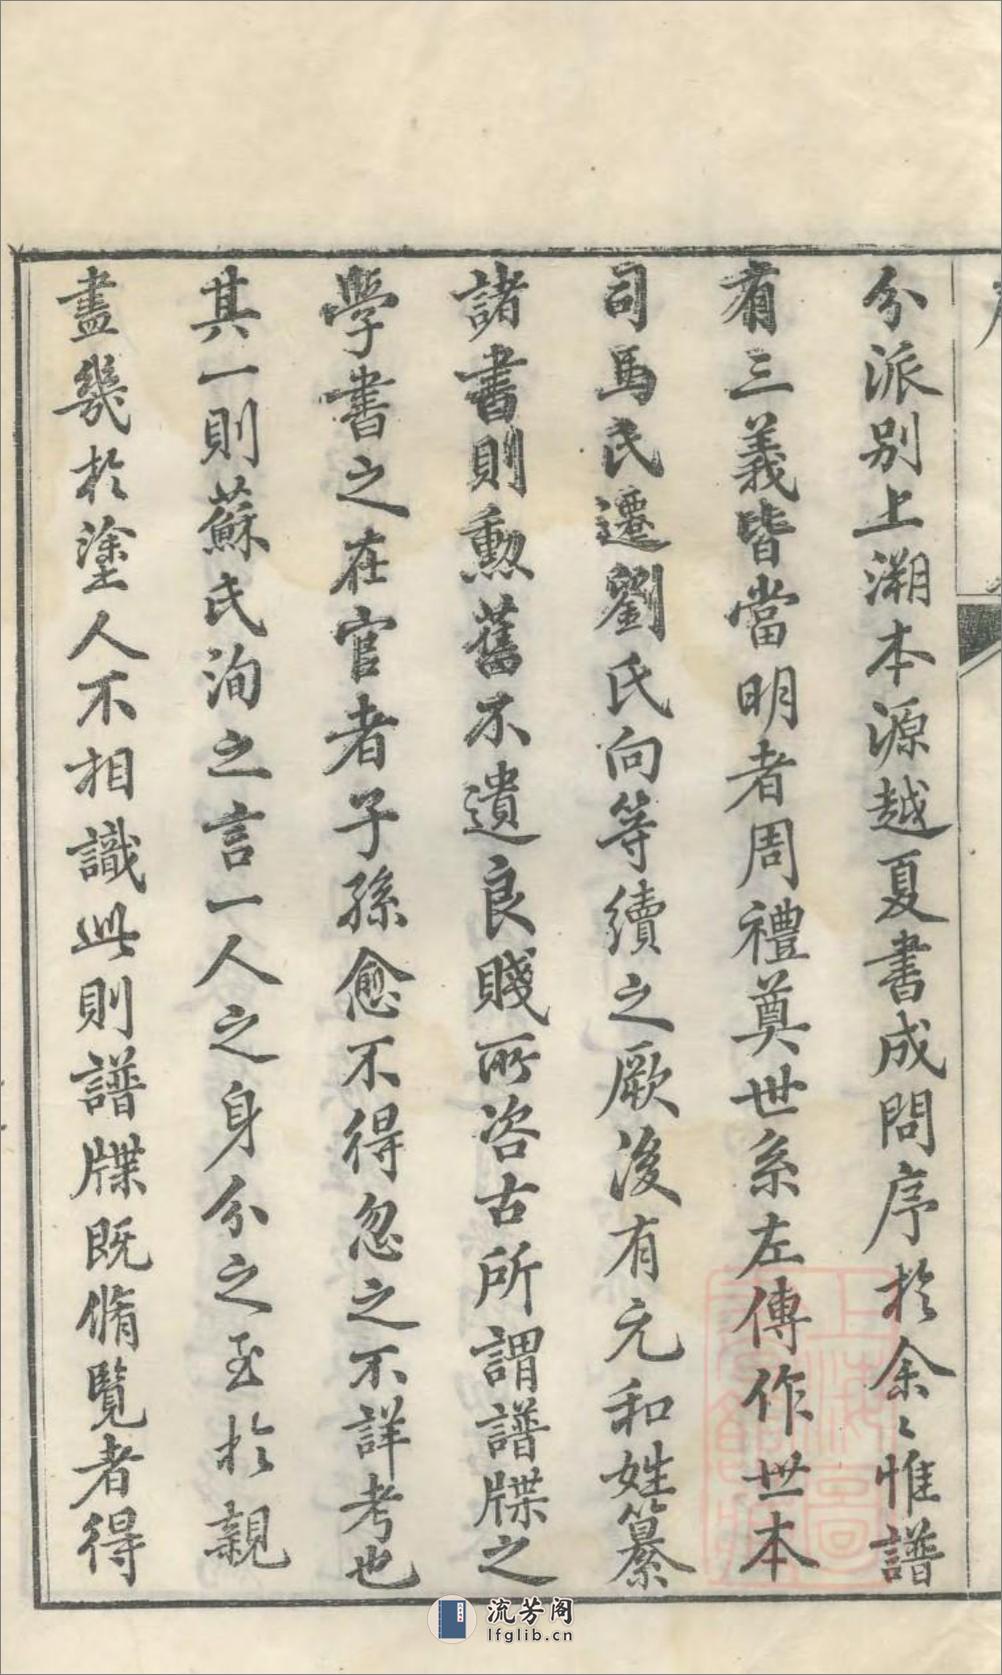 分派别上溯本源越夏書成問序於余〻惟譜
有三義皆當明者周禮奠世系左傳作世本
司馬氏遷劉氏向等續之厥後有元和姓纂
諸書則勲舊不遺良賤所咨古所謂譜牒之
學書之在官者子孫愈不得忽之不詳考也
其一則蘇氏洵之言一人之身分之至於親
盡幾於塗人不相識此則譜牒既脩覽者得
流芳阁
lfglib.cn